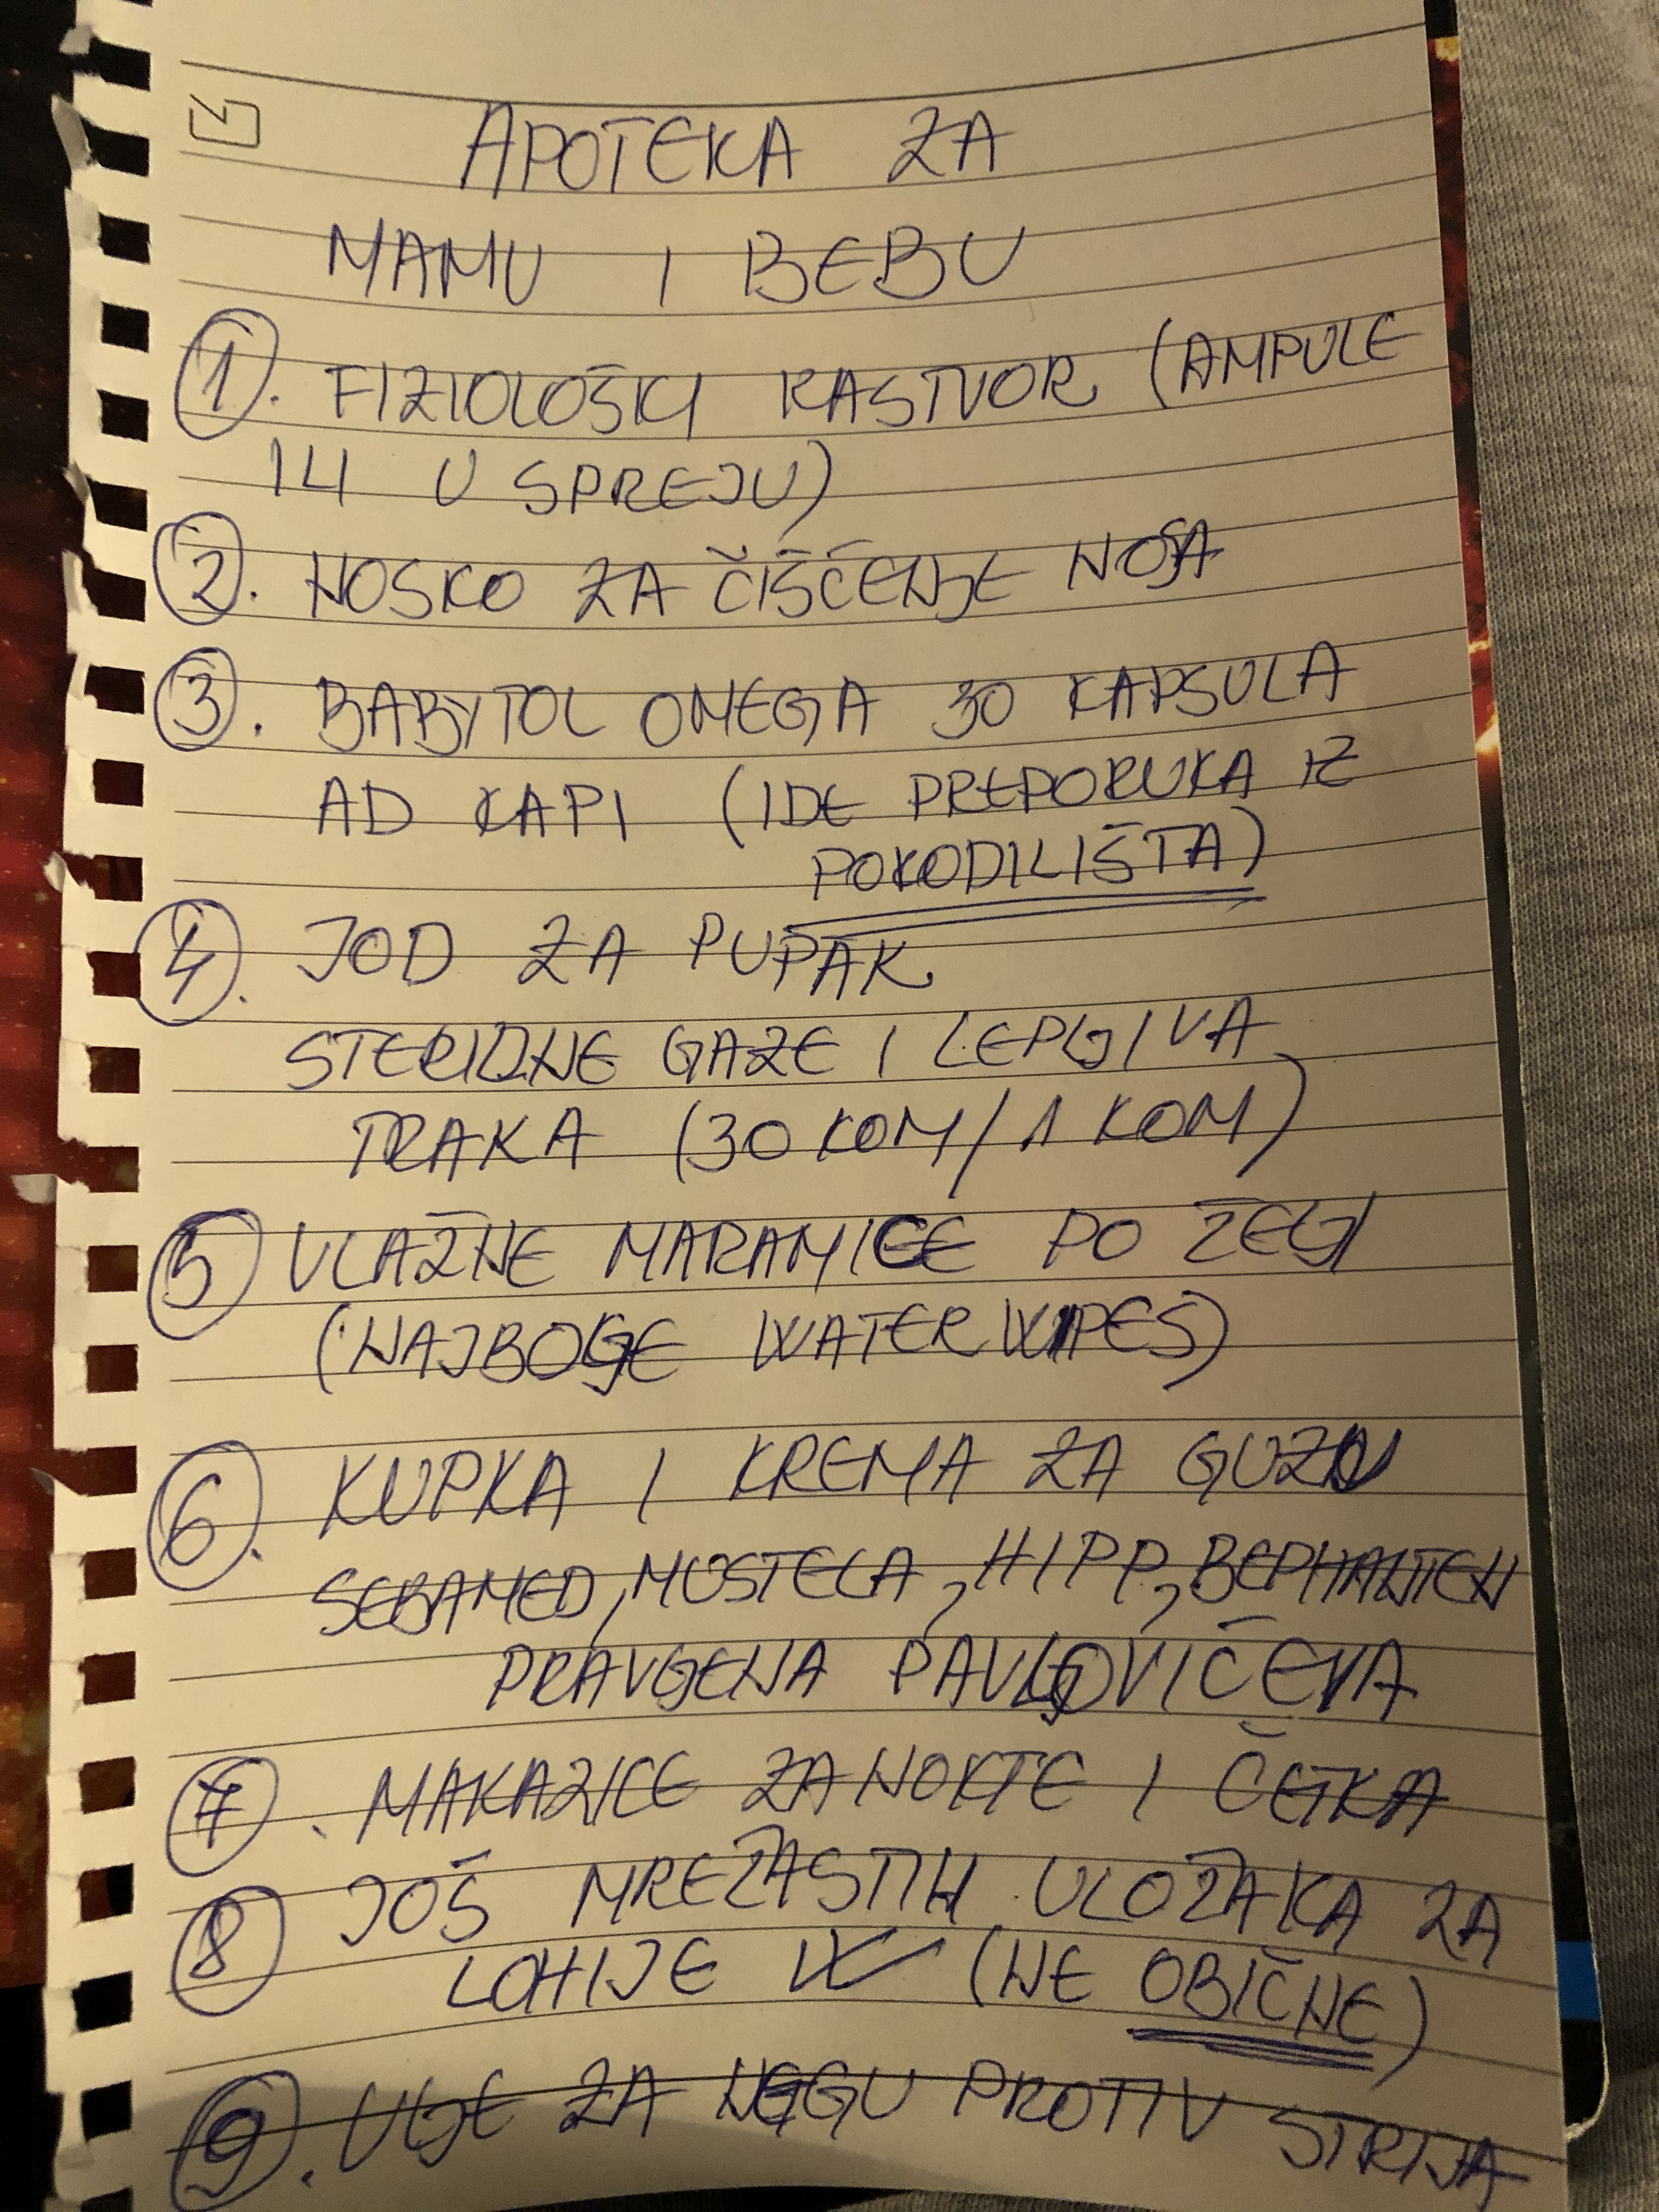 APOTEKA ZA
MAMU I BEBU
1. FIZIOLOŠKI RASTVOR (AMPULE
ILI U SPREJU)
2. NOSKO ZA ČIŠĆENJE NOSA
3. BABYTOL OMEGA 30 KAPSULA
AD KAPI (IDE PREPORUKA IZ
PORODILIŠTA)
4. JOD ZA PUPAK
STERILNE GAZE I LEPLJIVA
TRAKA (30 KOM/1 KOM)
5 VLAŽNE MARAMICE PO ŽELJI
(NAJBOLJE WATER WIPES)
6. KUPKA I KREMA ZA GUZU
SEBAMED, MUSTELA, HIPP, BEPHANTEN
PRAVLJENA PAVLOVIĆEVA
7. MAKAZICE ZA NOKTE I ČETKA
8 JOŠ MREŽASTIH ULOŽAKA ZA
LOHIJE (NE OBIČNE)
9. ULJE ZA NEGU PROTIV STRIJA